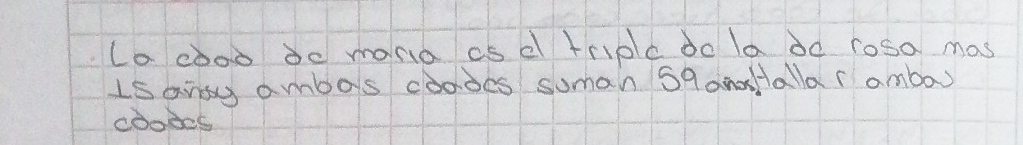 La edad de maria es el triple de la de rosa mas
15 años y ambas edades suman 59 años Hallar ambas
edades